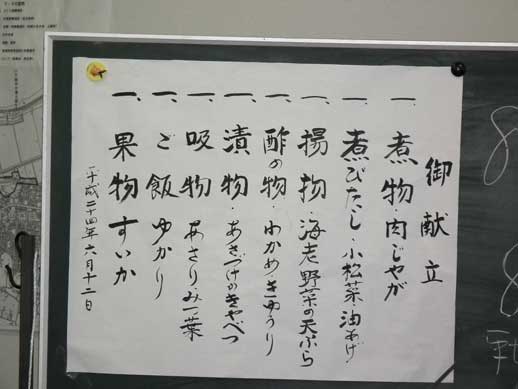 御献立
一、煮物・肉じゃが
一、煮びたし・小松菜・油あげ
一、揚物・海老野菜の天ぷら
一、酢の物・わかめきゅうり
一、漬物・あさづけのきゃべつ
一、吸物・あさり・み一葉
一、ご飯ゆかり
一、果物すいか
平成二十四年六月十二日